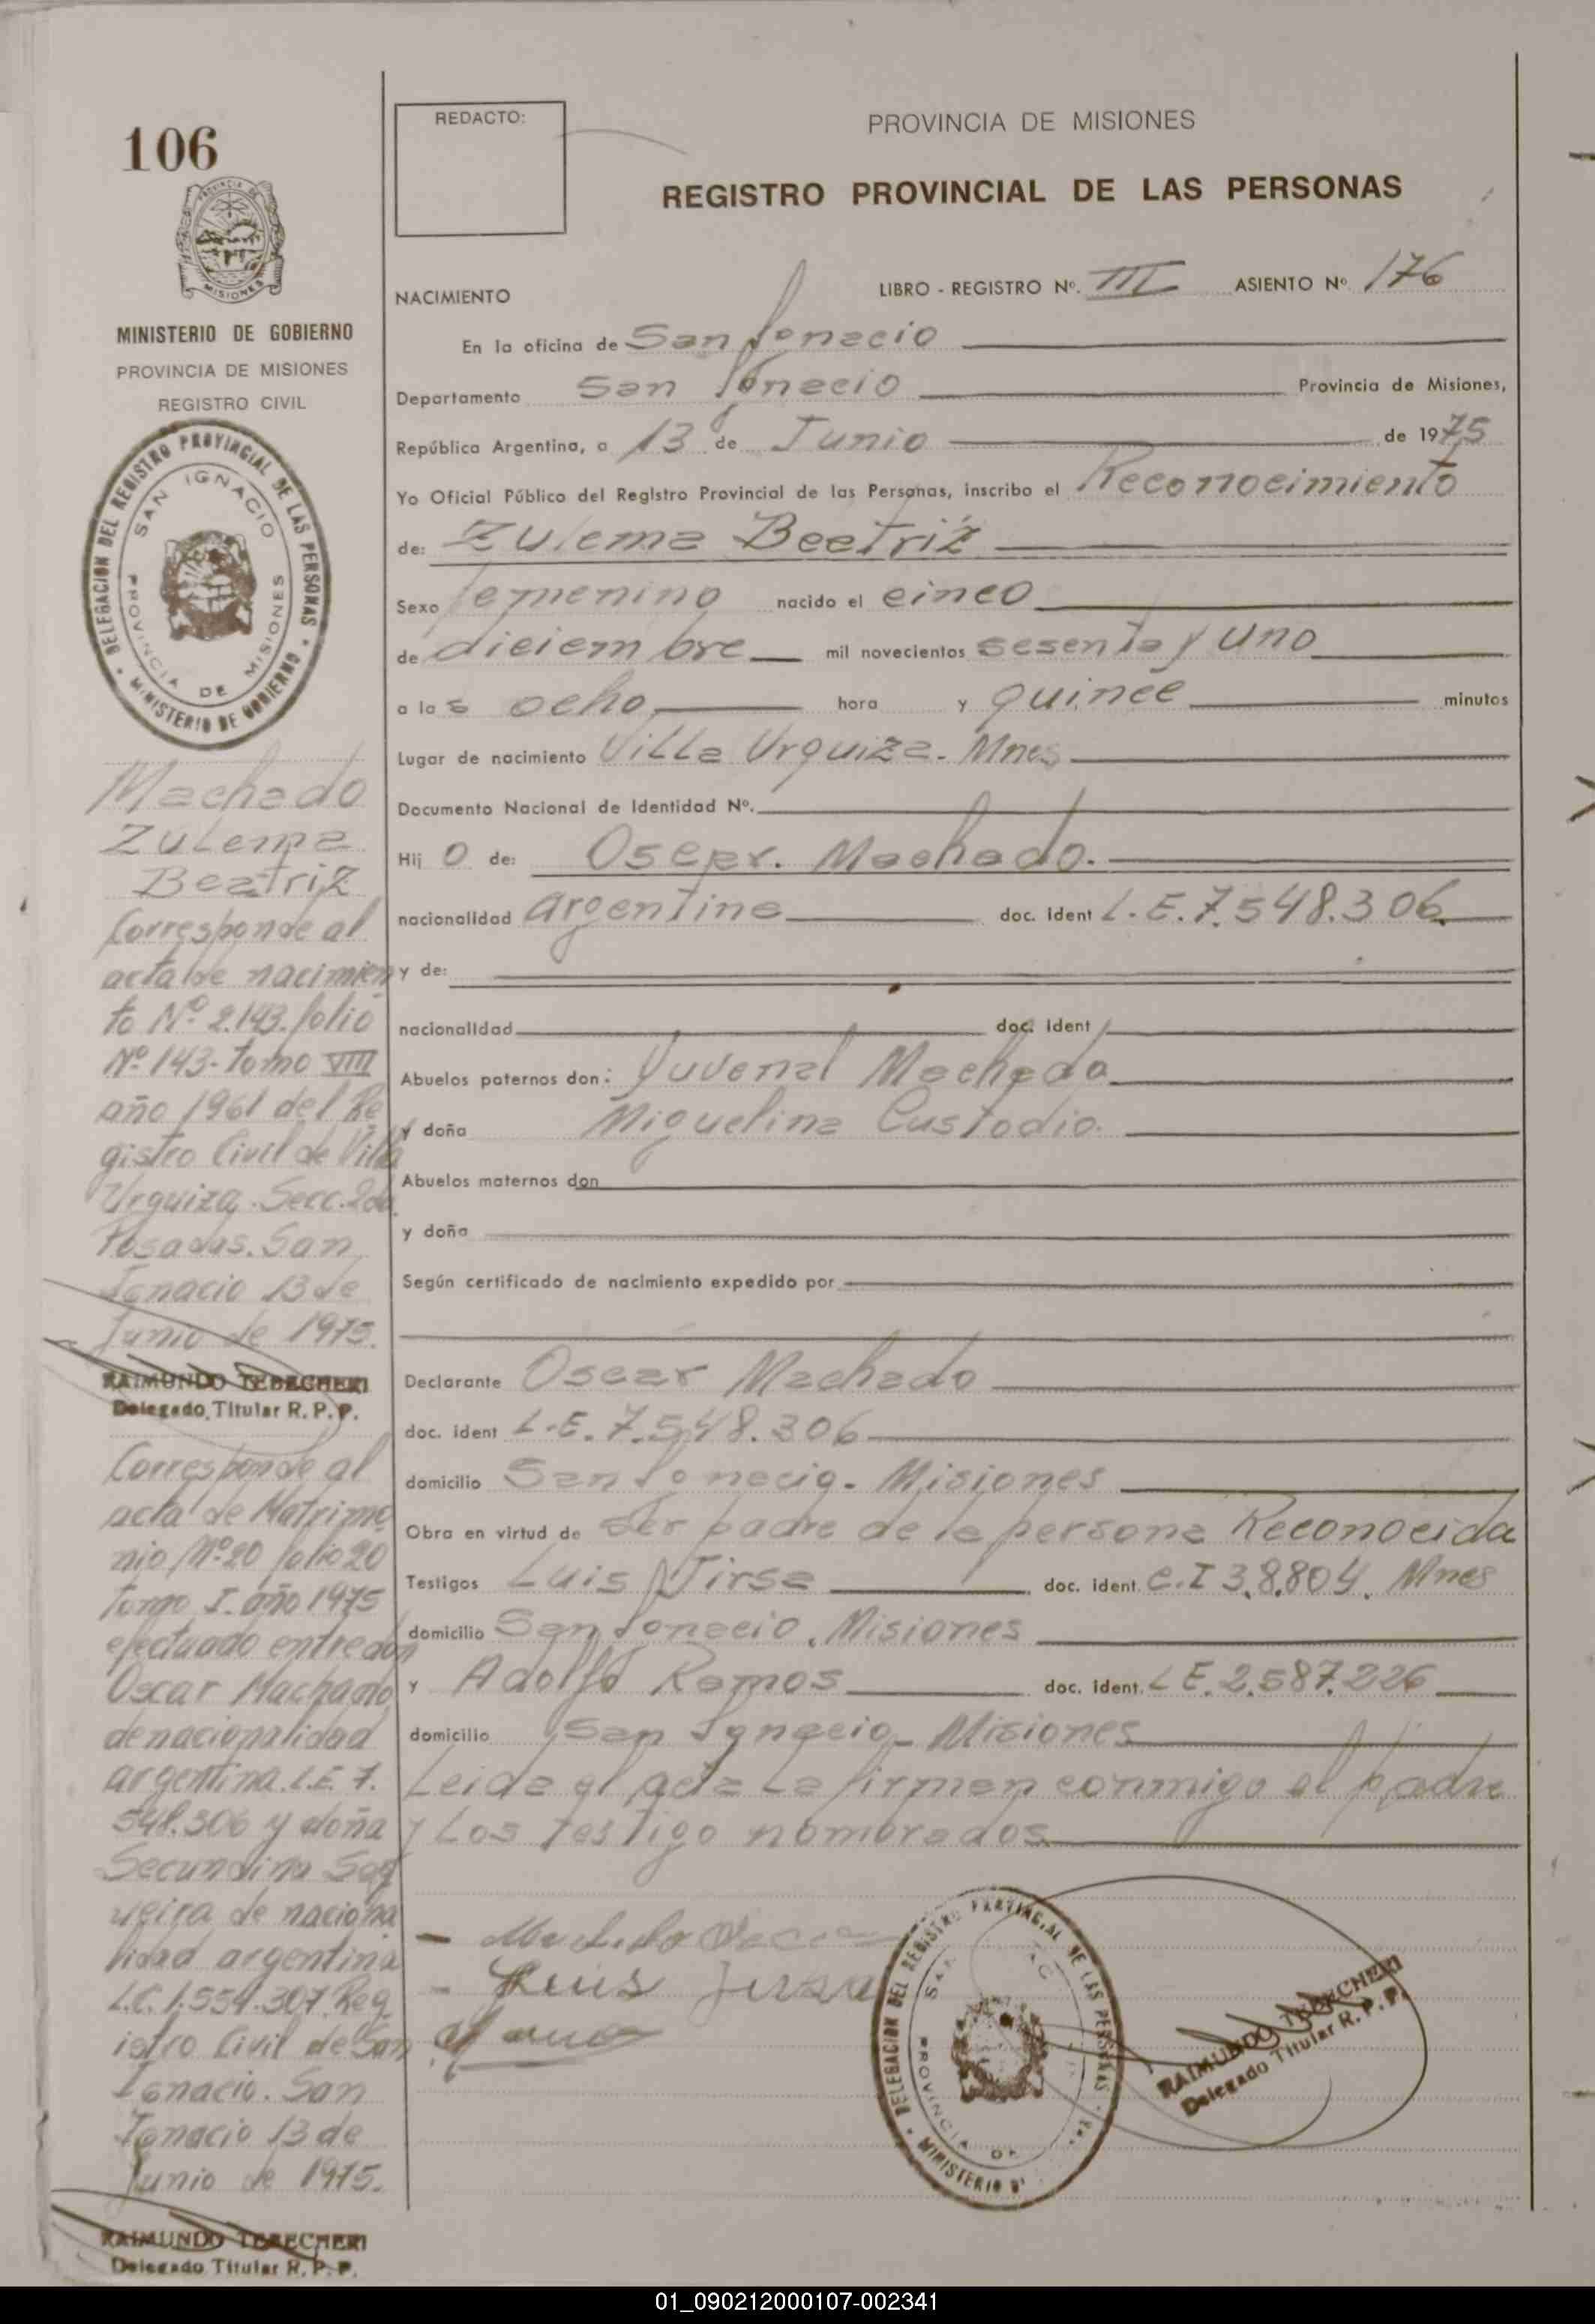 106
MINISTERIO DE GOBIERNO
PROVINCIA DE MISIONES
REGISTRO CIVIL
DELEGACION DEL REGISTRO PROVINCIAL DE LAS PERSONAS
MINISTERIO DE GOBIERNO
SAN IGNACIO
PROVINCIA DE MISIONES
Machado
Zulema
Beatriz
Corresponde al
acta de nacimien
to Nº 2.143. folio
Nº 143- tomo VIII
año 1961 del Re
gistro Civil de Villa
Urquiza. Secc. 2da
Posadas. San
Ignacio 13 de
Junio de 1975.
RAIMUNDO TERECHEKI
Delegado Titular R. P. P.
Corresponde al
acta de Matrimo
nio Nº 20 folio 20
tomo I. año 1975
efectuado entre don
Oscar Machado,
de nacionalidad
argentina. L.E 7.
548.306 y doña
Secundina Seq
ueira de naciona
lidad argentina
L.C. 1.554.307. Reg
istro Civil de San
Ignacio. San
Ignacio 13 de
Junio de 1975.
RAIMUNDO TERECHEKI
Delegado Titular R. P. P.
REDACTO:
PROVINCIA DE MISIONES
REGISTRO PROVINCIAL DE LAS PERSONAS
NACIMIENTO LIBRO - REGISTRO Nº. III ASIENTO Nº 176
En la oficina de San Ignacio
Departamento San Ignacio Provincia de Misiones,
República Argentina, a 13 de Junio de 1975
Yo Oficial Público del Registro Provincial de las Personas, inscribo el Reconocimiento
de: Zulema Beatriz
Sexo femenino nacido el cinco
de diciembre mil novecientos sesenta y uno
a las ocho hora y quince minutos
Lugar de nacimiento Villa Urquiza. Mnes
Documento Nacional de Identidad Nº.
Hij o de: Oscar. Machado.
nacionalidad argentina doc. ident L.E. 7.548.306
y de:
nacionalidad doc. ident
Abuelos paternos don: Juvenal Machado
y doña Miguelina Custodio.
Abuelos maternos don
y doña
Según certificado de nacimiento expedido por
Declarante Oscar Machado
doc. ident L.E. 7.548.306
domicilio San Ignacio. Misiones
Obra en virtud de ser padre de la persona Reconocida
Testigos Luis Jirsa doc. ident. C.I 38.804. Mnes
domicilio San Ignacio. Misiones
y Adolfo Ramos doc. ident. L E. 2.587.226
domicilio San Ignacio Misiones
Leida el acta la firman conmigo el padre
y los testigo nombrados
Machado Oscar
Luis Jirsa
DELEGACION DEL REGISTRO PROVINCIAL DE LAS PERSONAS
MINISTERIO D
PROVINCIA DE
RAIMUNDO TERECHEKI
Delegado Titular R. P. P.
01_090212000107-002341